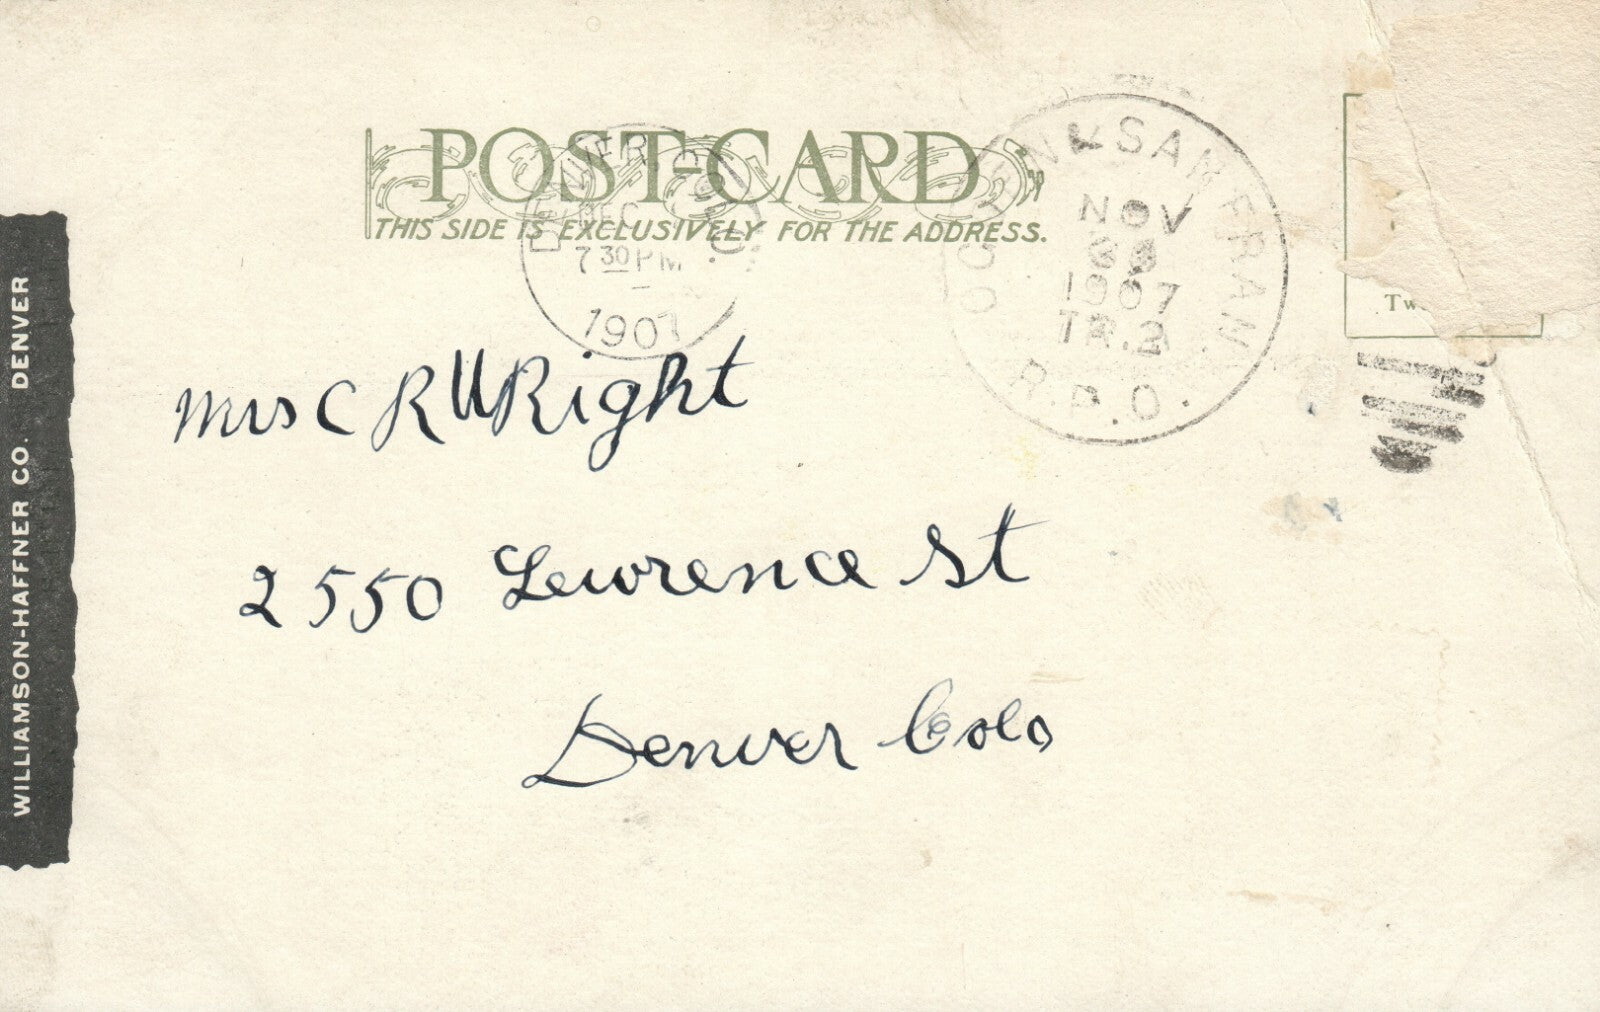 POST-CARD
THIS SIDE IS EXCLUSIVELY FOR THE ADDRESS.
DENVER COLO.
DEC
7 30 PM
1907
OGDEN & SAN FRAN.
NOV
1907
TR.2
R.P.O.
WILLIAMSON-HAFFNER CO. DENVER
Mrs C R WRight
2550 Lewrence St
Denver Colo